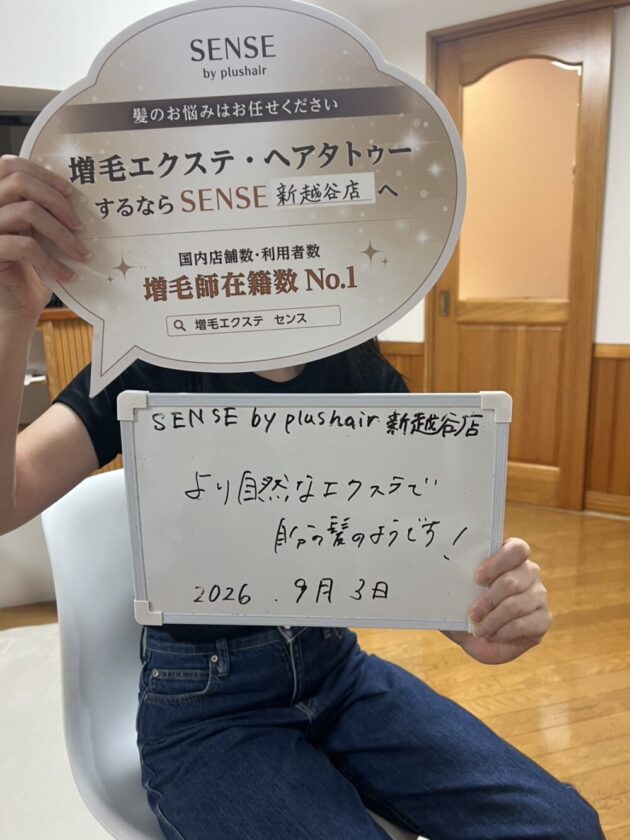 SENSE
by plushair
髪のお悩みはお任せください
増毛エクステ・ヘアタトゥー
するなら SENSE 新越谷店 へ
国内店舗数・利用者数
増毛師在籍数 No.1
増毛エクステ センス
SENSE by plushair 新越谷店
より自然なエクステで
自分の髪のようです!
2026.9月3日